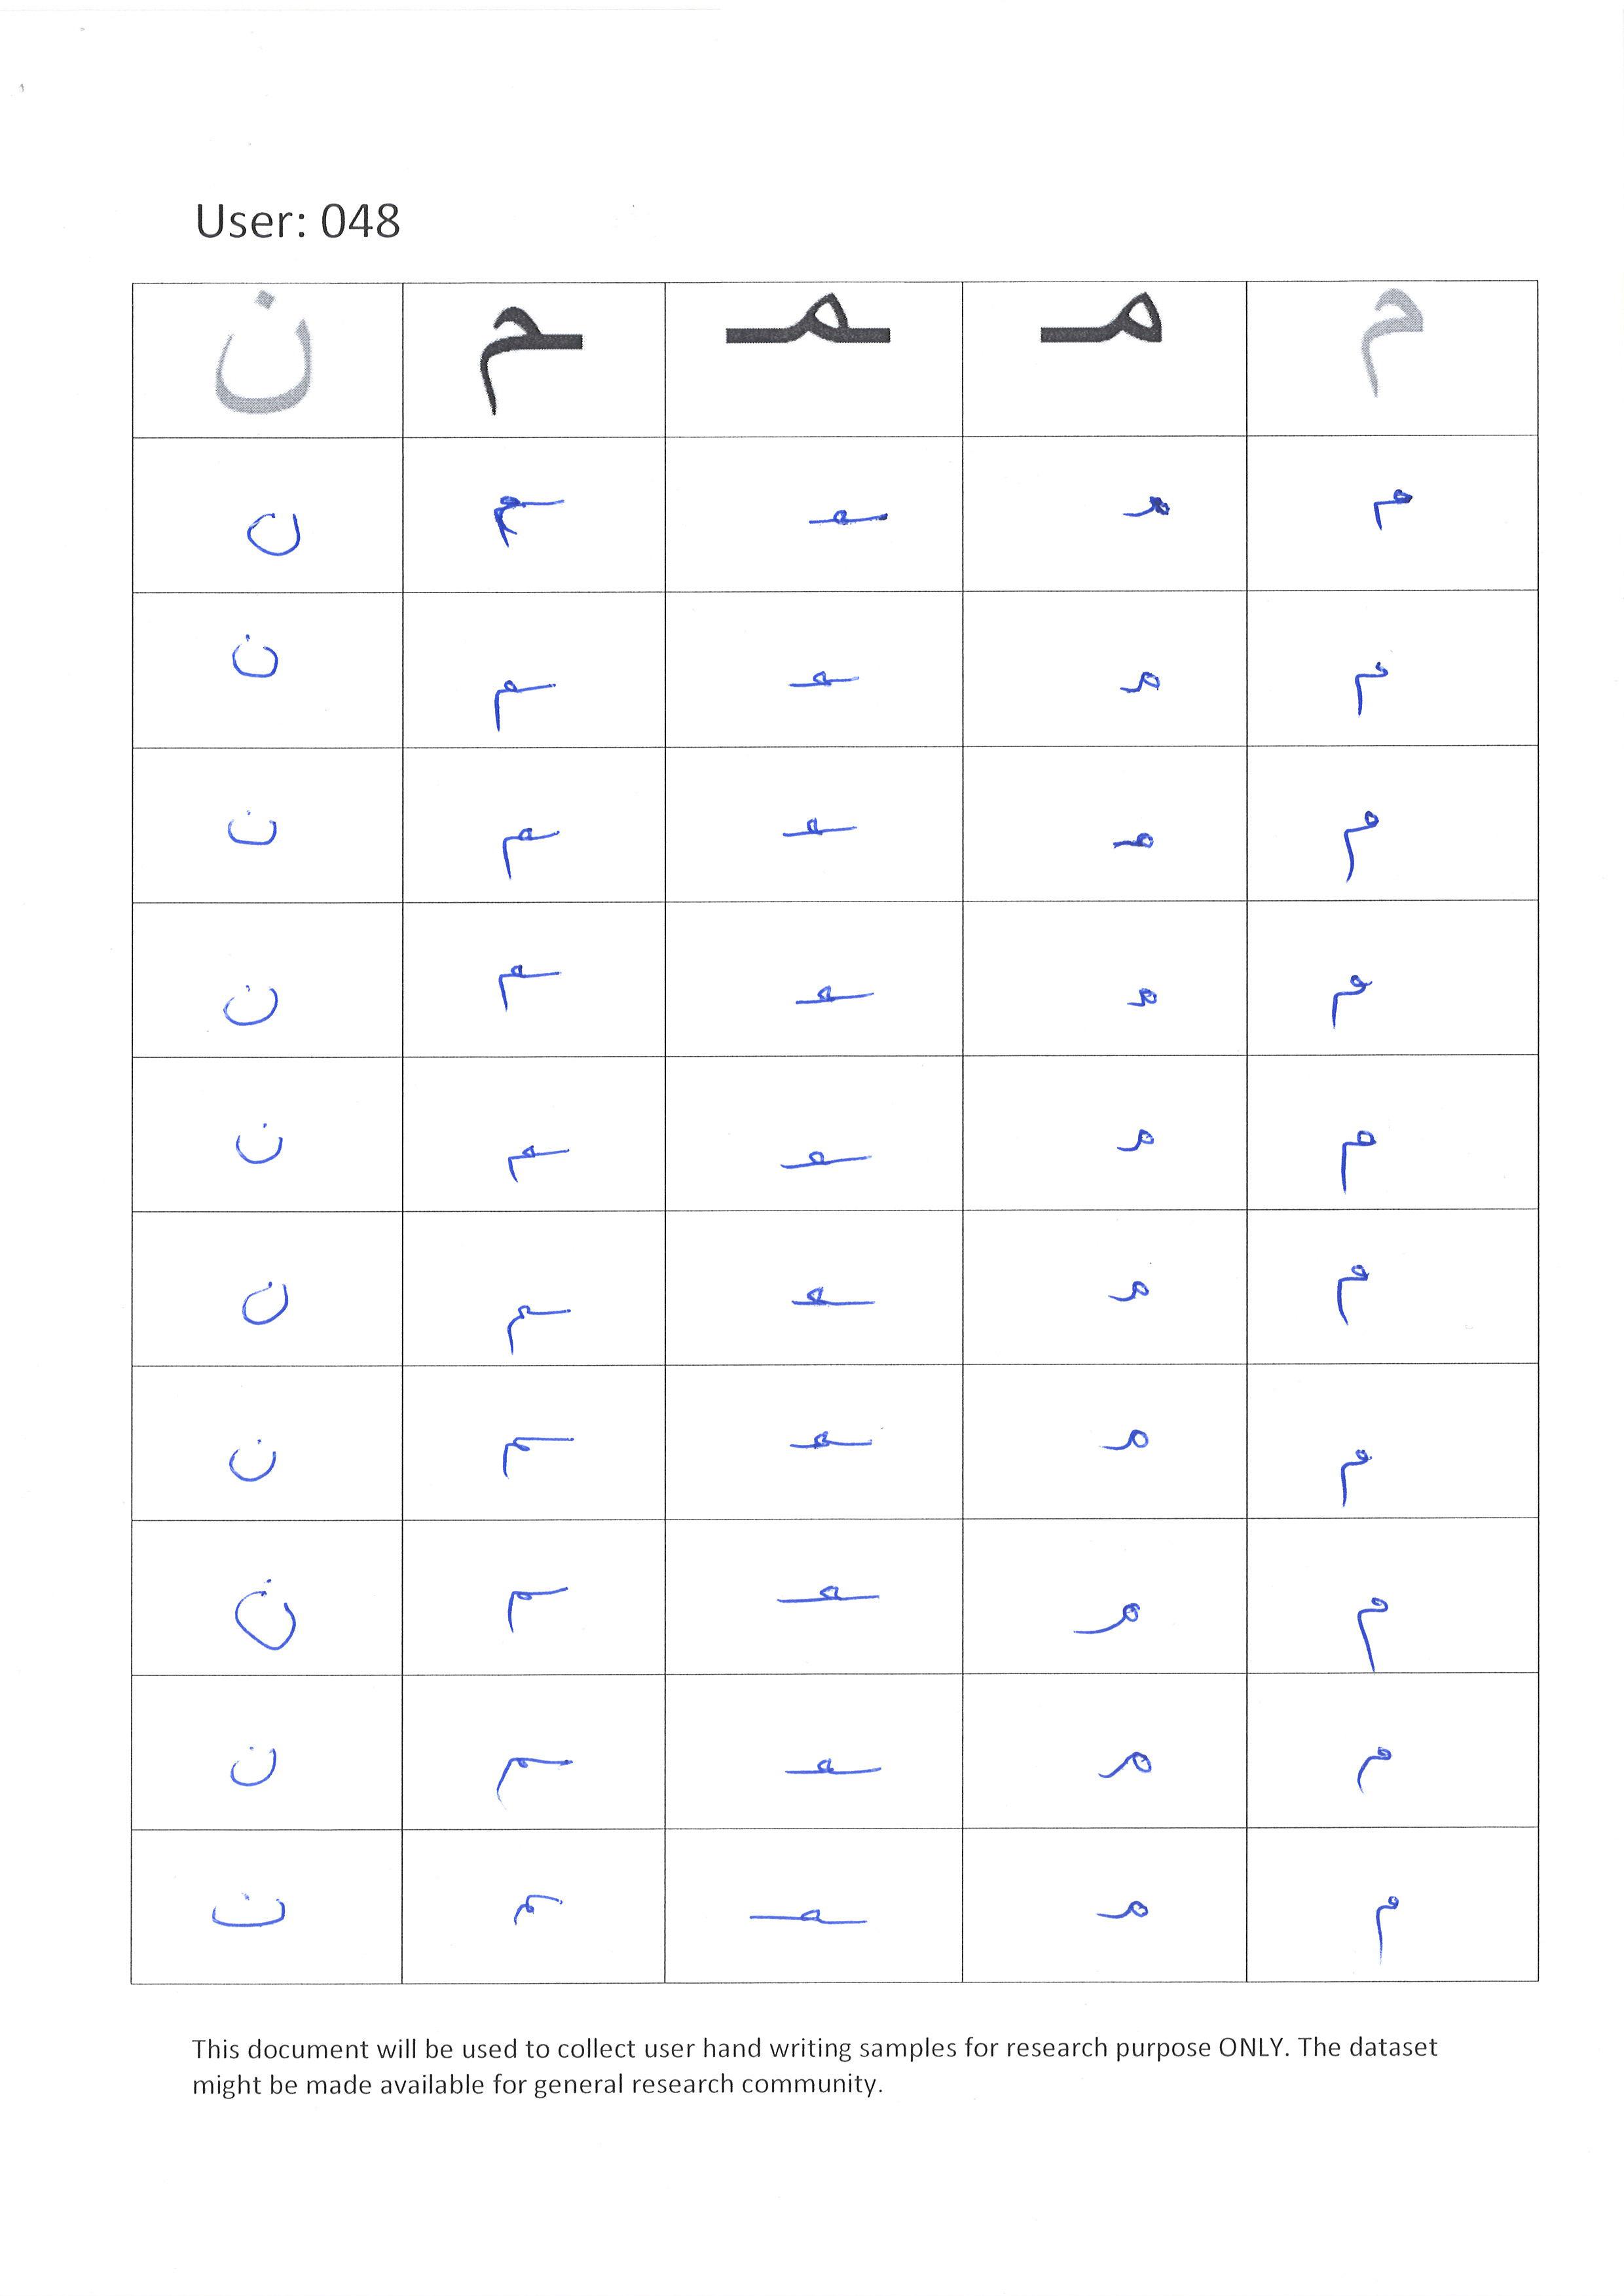 User: 048
م مـ ـمـ ـم ن
م مـ ـمـ ـم ن
م مـ ـمـ ـم ن
م مـ ـمـ ـم ن
م مـ ـمـ ـم ن
م مـ ـمـ ـم ن
م مـ ـمـ ـم ن
م مـ ـمـ ـم ن
م مـ ـمـ ـم ن
م مـ ـمـ ـم ن
م مـ ـمـ ـم ن
This document will be used to collect user hand writing samples for research purpose ONLY. The dataset
might be made available for general research community.